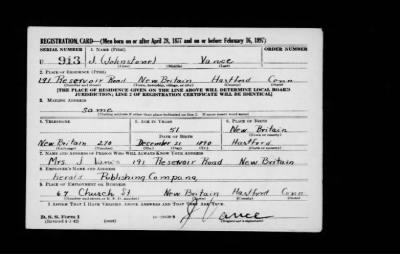 REGISTRATION CARD—(Men born on or after April 28, 1877 and on or before February 16, 1897)
SERIAL NUMBER 1. NAME (Print) ORDER NUMBER
U 913 J. (Johnstone) Vance
2. PLACE OF RESIDENCE (Print)
191 Reservoir Road New Britain Hartford Conn
(Number and street) (Town, township, village, or city) (County) (State)
[THE PLACE OF RESIDENCE GIVEN ON THE LINE ABOVE WILL DETERMINE LOCAL BOARD
JURISDICTION; LINE 2 OF REGISTRATION CERTIFICATE WILL BE IDENTICAL]
3. MAILING ADDRESS
Same
[Mailing address if other than place indicated on line 2. If same insert word same]
4. TELEPHONE 5. AGE IN YEARS 6. PLACE OF BIRTH
51 New Britain
DATE OF BIRTH
New Britain 210 December 21 1890 Hartford
7. NAME AND ADDRESS OF PERSON WHO WILL ALWAYS KNOW YOUR ADDRESS
Mrs. J Vance 191 Reservoir Road New Britain
8. EMPLOYER'S NAME AND ADDRESS
Herald Publishing Company
9. PLACE OF EMPLOYMENT OR BUSINESS
67 Church St New Britain Hartford Conn
(Number and street or R. F. D. number) (Town) (County) (State)
I AFFIRM THAT I HAVE VERIFIED ABOVE ANSWERS AND THAT THEY ARE TRUE.
D. S. S. Form 1
J Vance